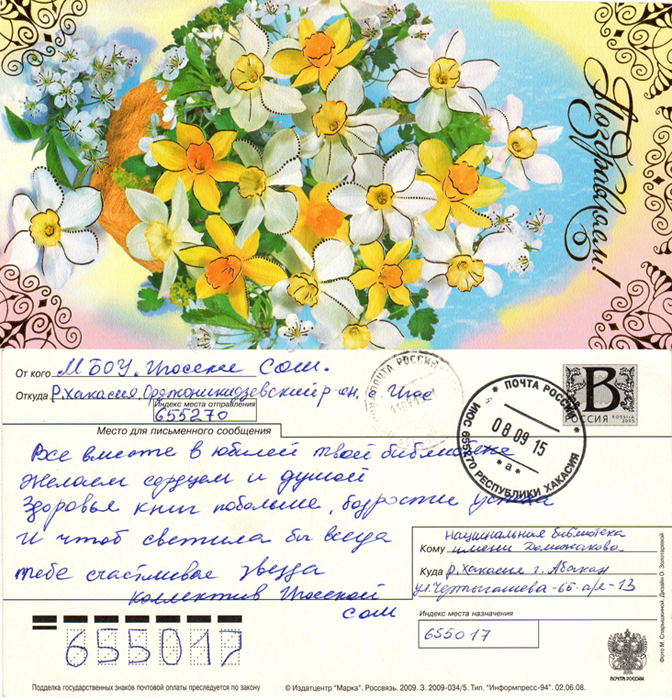 Поздравляем!
От кого МБОУ "Июсская СОШ"
Откуда Р. Хакасия, Орджоникидзевский р-он, с. Июс
Индекс места отправления
655270
Место для письменного сообщения
Все вместе в юбилей твой библиотека
Желаем сердцем и душой
Здоровья книг побольше, бодрости успеха
И чтоб светила бы всегда
тебе счастливая звезда
коллектив Июсской
СОШ
ПОЧТА РОССИИ
ИЮС 655270 РЕСПУБЛИКИ ХАКАСИЯ
08 09 15
*а*
ПОЧТА РОССИИ
В
РОССИЯ
ROSSIJA
Кому Национальная библиотека
имени Доможакова
Куда р. Хакасия г. Абакан
ул. Чертыгашева-65 а/я-13
Индекс места назначения
655017
655017
ПОЧТА РОССИИ
Фото М. Старышкиной. Дизайн О. Золотаревой
Подделка государственных знаков почтовой оплаты преследуется по закону
© Издатцентр "Марка". Россвязь. 2009. З. 2009-034/5. Тип. "Информпресс-94". 02.06.08.